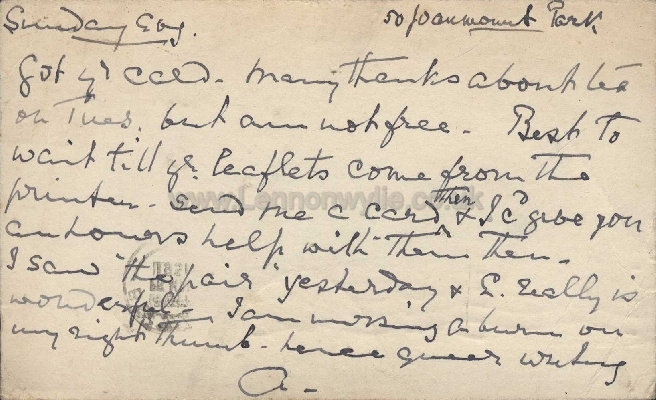 Sunday Evg. 50 Joanmount Park
Got yr card. Many thanks about tea
on Tues. but am not free. Best to
wait till yr. leaflets come from the
printer. Send me a card then & I cd give you
an hour's help with them then.
I saw "the pair" yesterday & E. really is
wonderful. I am nursing a burn on
my right thumb - hence queer writing
A -
www.Lennonwylie.co.uk